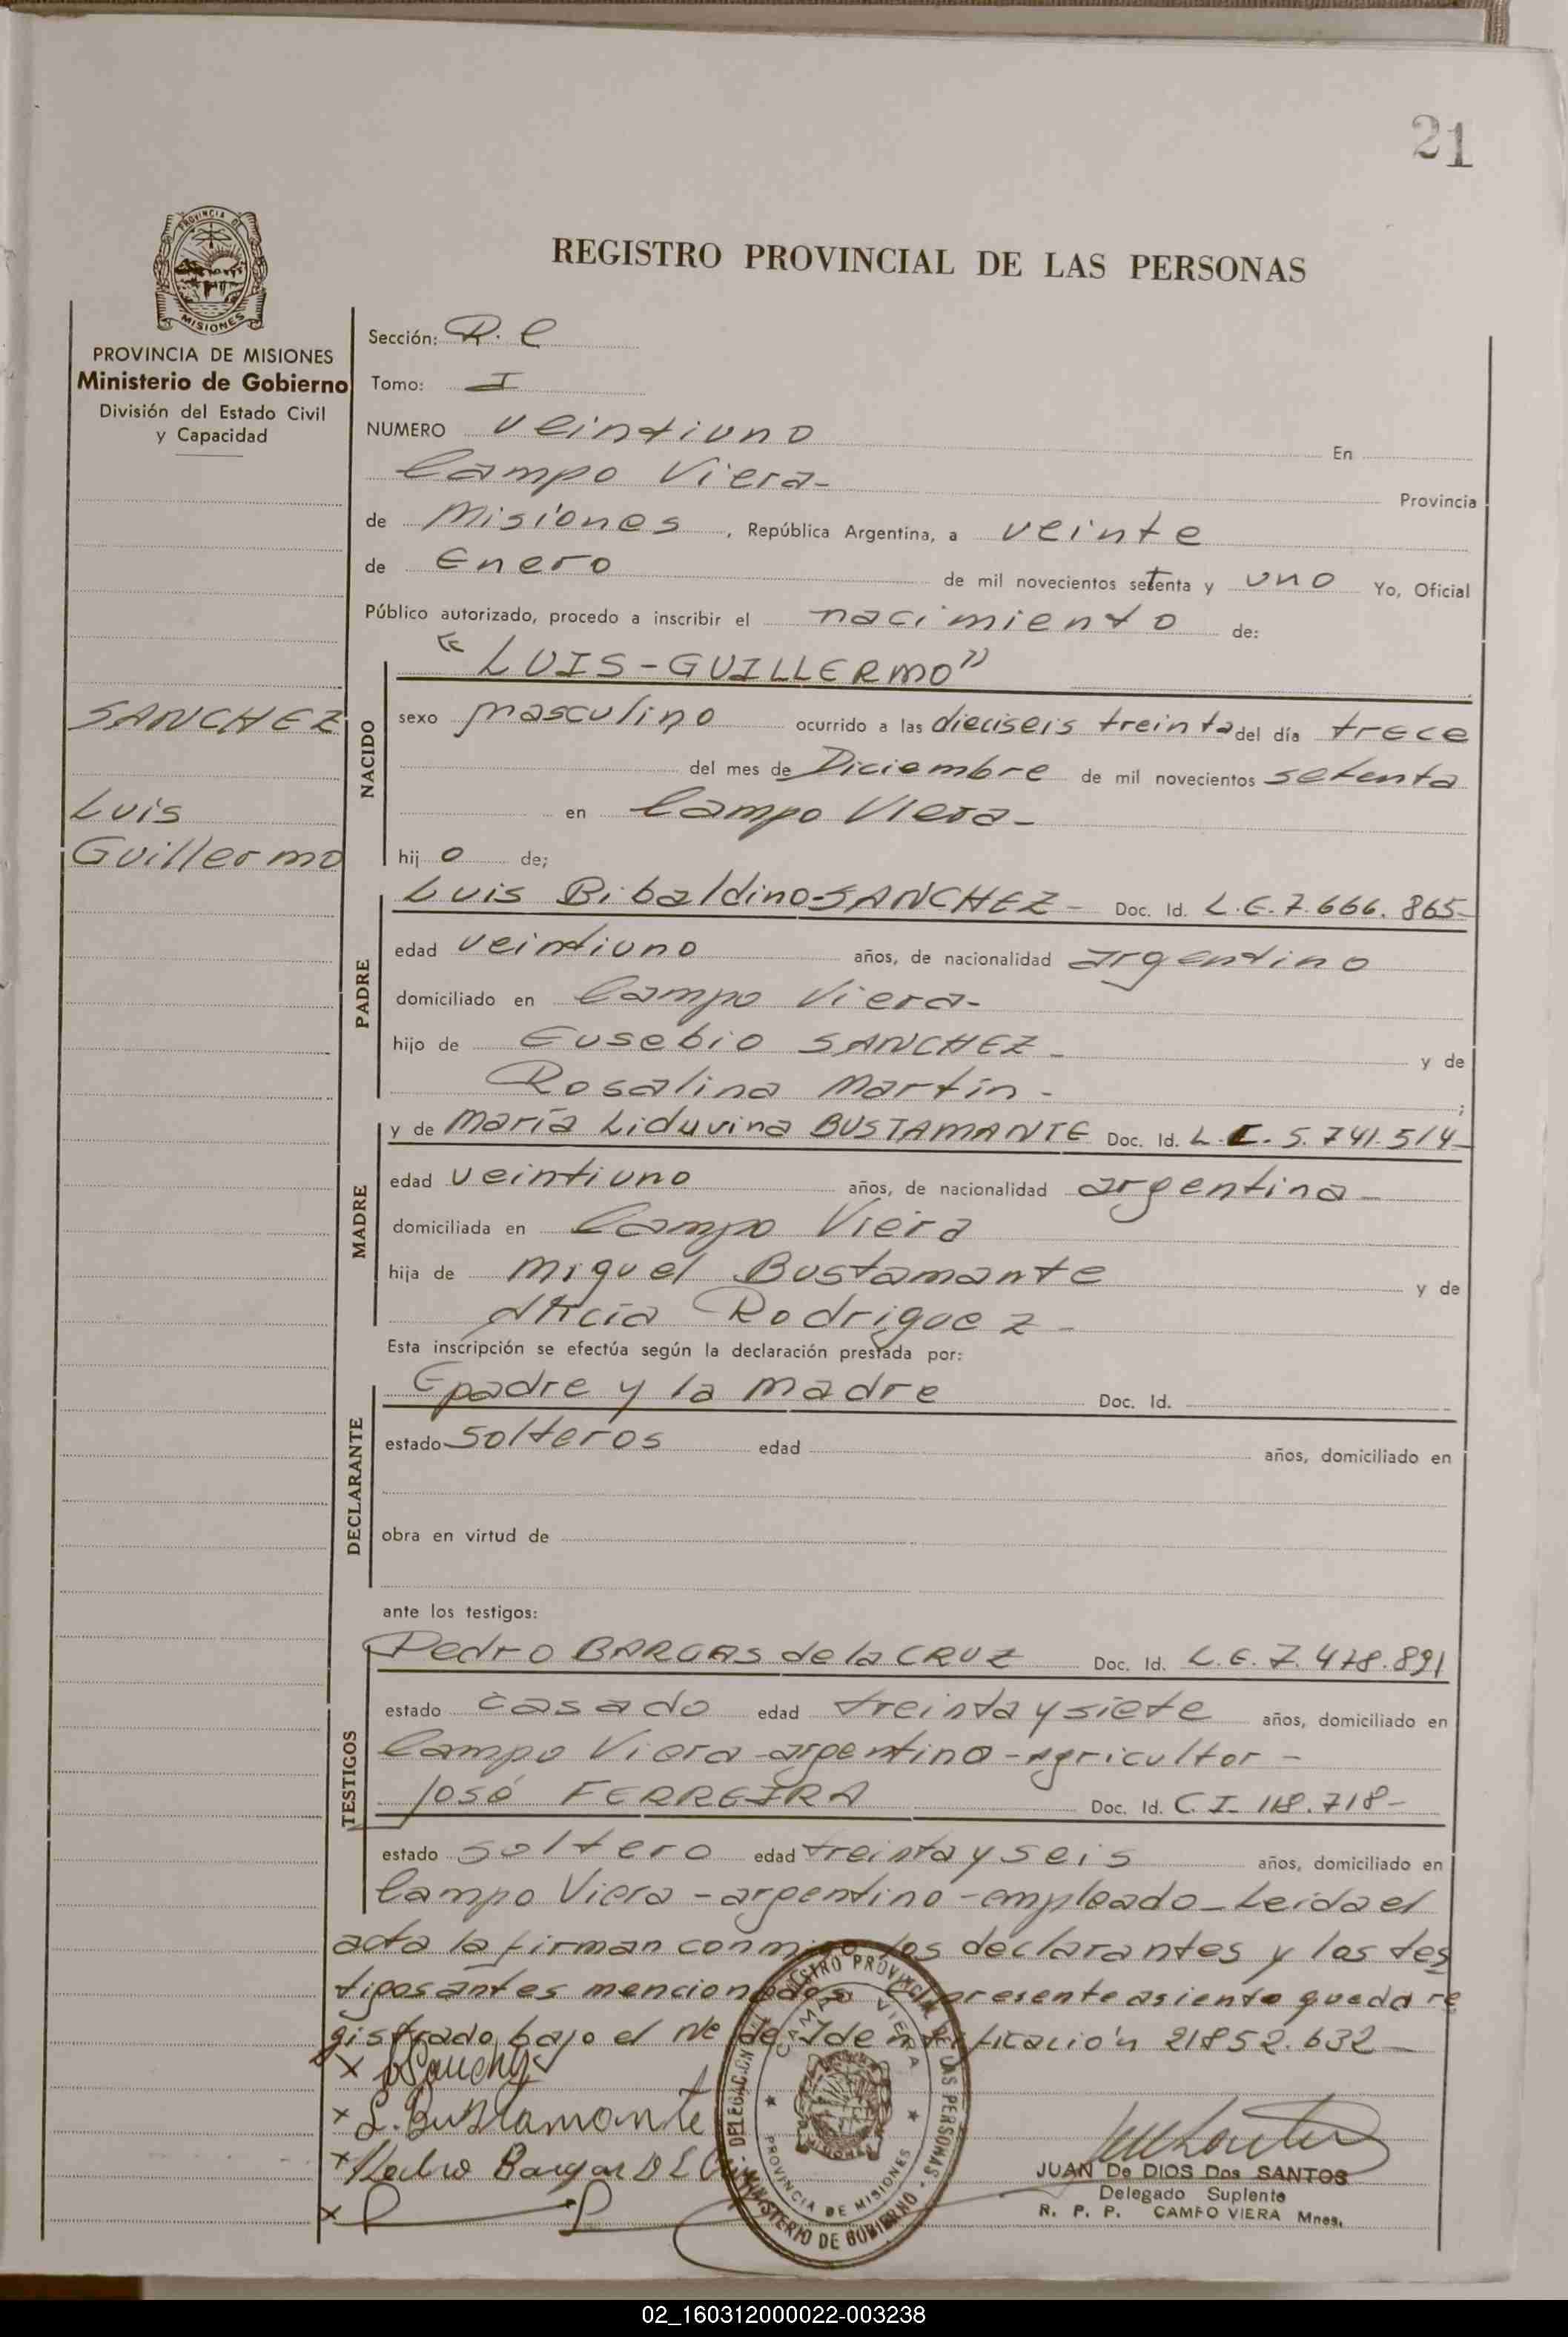 21
PROVINCIA DE
MISIONES
REGISTRO PROVINCIAL DE LAS PERSONAS
PROVINCIA DE MISIONES
Ministerio de Gobierno
División del Estado Civil
y Capacidad
SANCHEZ
Luis
Guillermo
Sección: R. C
Tomo: I
NUMERO veintiuno En
Campo Viera- Provincia
de Misiones, República Argentina, a veinte
de Enero de mil novecientos setenta y uno Yo, Oficial
Público autorizado, procedo a inscribir el nacimiento de:
"LUIS-GUILLERMO"
NACIDO
sexo masculino ocurrido a las dieciseis treinta del día trece
del mes de Diciembre de mil novecientos setenta
en Campo Viera-
hij o de;
PADRE
Luis Bibaldino-SANCHEZ- Doc. Id. L.E. 7.666.865-
edad veintiuno años, de nacionalidad argentino
domiciliado en Campo Viera-
hijo de Eusebio SANCHEZ- y de
Rosalina Martín- ;
MADRE
y de María Liduvina BUSTAMANTE Doc. Id. L.C. 5.741.514-
edad veintiuno años, de nacionalidad argentina-
domiciliada en Campo Viera
hija de Miguel Bustamante y de
Alicia Rodriguez-
Esta inscripción se efectúa según la declaración prestada por:
DECLARANTE
padre y la madre Doc. Id.
estado solteros edad años, domiciliado en
obra en virtud de
ante los testigos:
TESTIGOS
Pedro BARGAS de la CRUZ Doc. Id. L.E. 7.478.891
estado casado edad treinta y siete años, domiciliado en
Campo Viera-argentino-agricultor-
José FERREIRA Doc. Id. C.I. 118.718-
estado soltero edad treinta y seis años, domiciliado en
Campo Viera-argentino-empleado-Leida el
acta la firman conmigo los declarantes y los tes
tigos antes mencionados. El presente asiento queda re
gistrado bajo el Nº de Identificación 21852.632-
x Sanchez
x L. Bustamante
x Pedro Bargas DE
x
REGISTRO PROVINCIAL DE LAS PERSONAS
DELEGACION
MINISTERIO DE GOBIERNO
CAMPO VIERA
PROVINCIA DE MISIONES
JUAN De DIOS Dos SANTOS
Delegado Suplente
R. P. P. CAMPO VIERA Mnes.
02_160312000022-003238